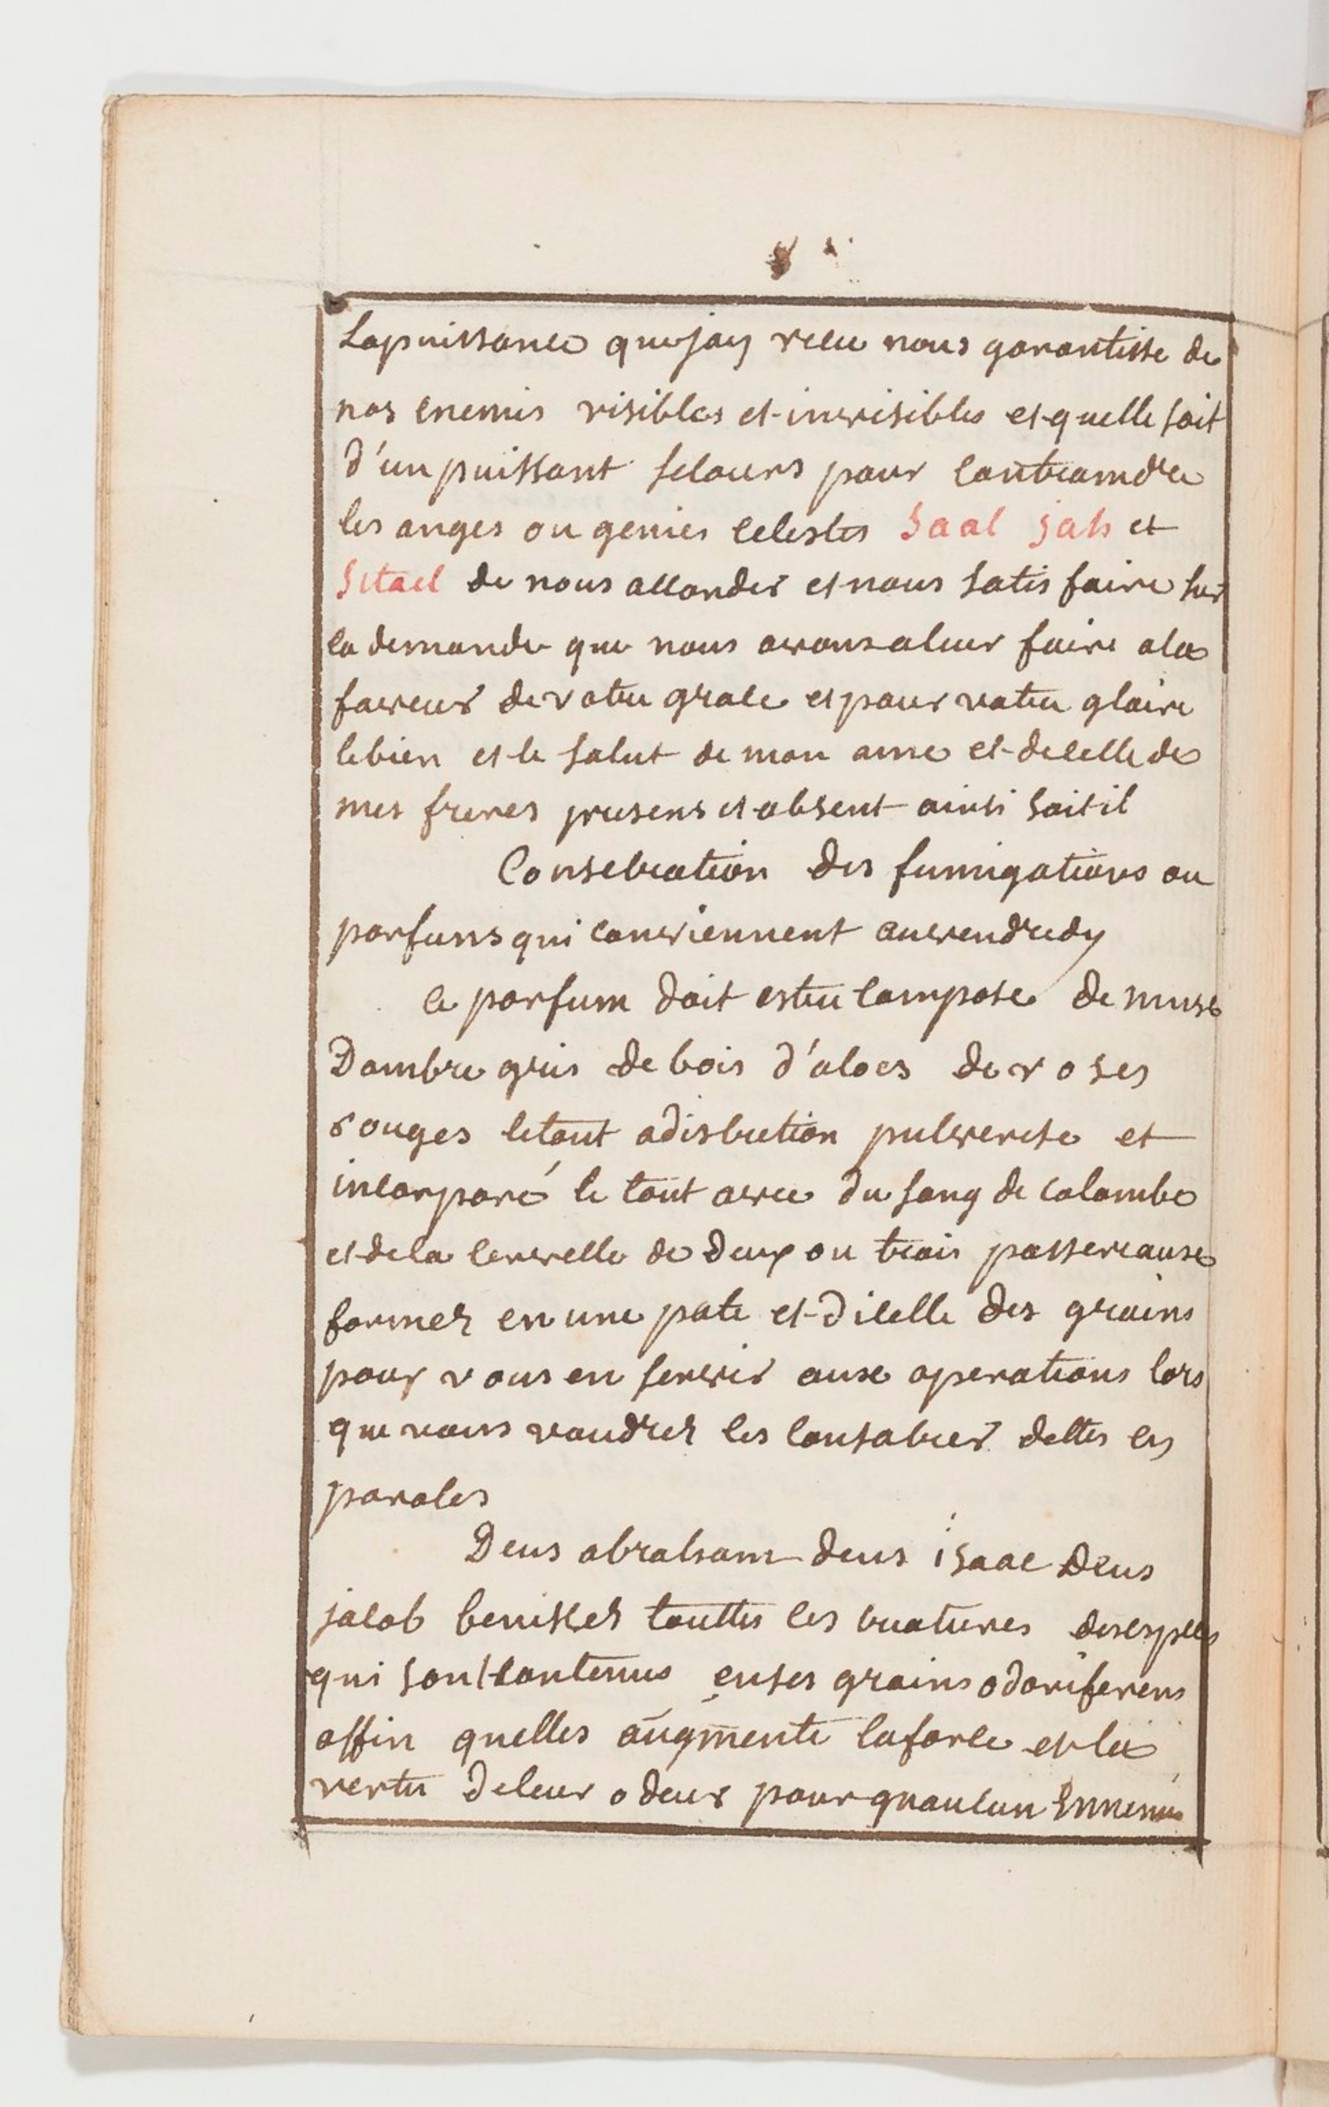 La puissance que jay receu nous garantisse de
nos enemis visibles et invisibles et quelle soit
d'un puissant secours pour contraindre
les anges ou genies celestes Saal jah et
Sitael de nous accorder et nous satisfaire sur
la demande que nous avons a leur faire a la
faveur de votre grace et pour votre gloire
le bien et le salut de mon ame et de celle de
mes freres presens et absent ainsi soit il
Consecration des fumigations ou
parfuns qui conviennent au vendredy
ce parfum doit estre compose de musc
Dambre gris de bois d'aloes de roses
rouges le tout a discretion pulverise et
incorporé le tout avec du sang de colombe
et de la cervelle de deux ou trois passereaux
formez en une pate et dicelle des grains
pour vous en servir aux operations lors
que vous voudrez les consacrer dettes ces
paroles
Deus abraham deus isaac Deus
jacob benissez touttes les creatures des especes
qui sont contenus en ses grains odoriferens
affin quelles augmente la force et la
vertu de leur odeur pour quaucun Ennemis